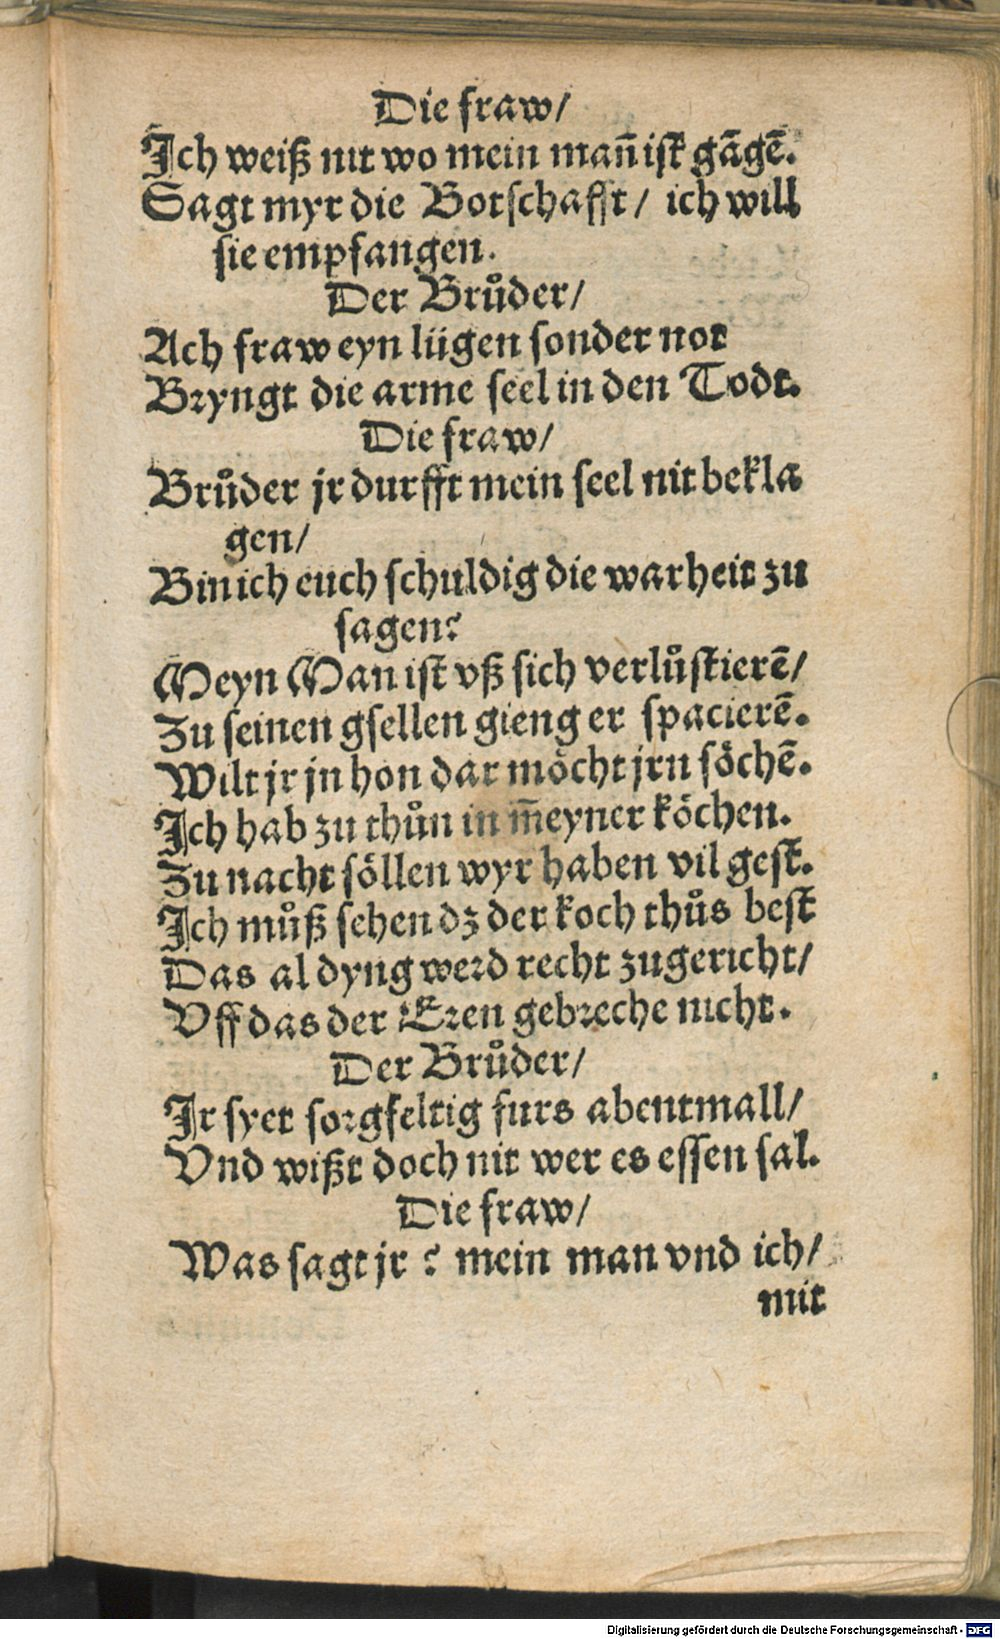 Die fraw/
Ich weiß nit wo mein mañ ist gãgẽ.
Sagt myr die Botschafft/ ich will
sie empfangen.
Der Brůder/
Ach fraw eyn lügen sonder not
Bryngt die arme seel in den Todt.
Die fraw/
Brůder jr durfft mein seel nit bekla
gen/
Bin ich euch schuldig die warheit zu
sagen?
Meyn Man ist vß sich verlůstierẽ/
Zu seinen gsellen gieng er spacierẽ.
Wilt jr jn hon dar möcht jrn söchẽ.
Ich hab zu thůn in m̃eyner köchen.
Zu nacht söllen wyr haben vil gest.
Ich můß sehen dz der koch thůs best
Das al dyng werd recht zugericht/
Vff das der Eren gebreche nicht.
Der Brůder/
Ir syet sorgfeltig furs abentmall/
Vnd wißt doch nit wer es essen sal.
Die fraw/
Was sagt jr? mein man vnd ich/
mit
Digitalisierung gefördert durch die Deutsche Forschungsgemeinschaft - DFG